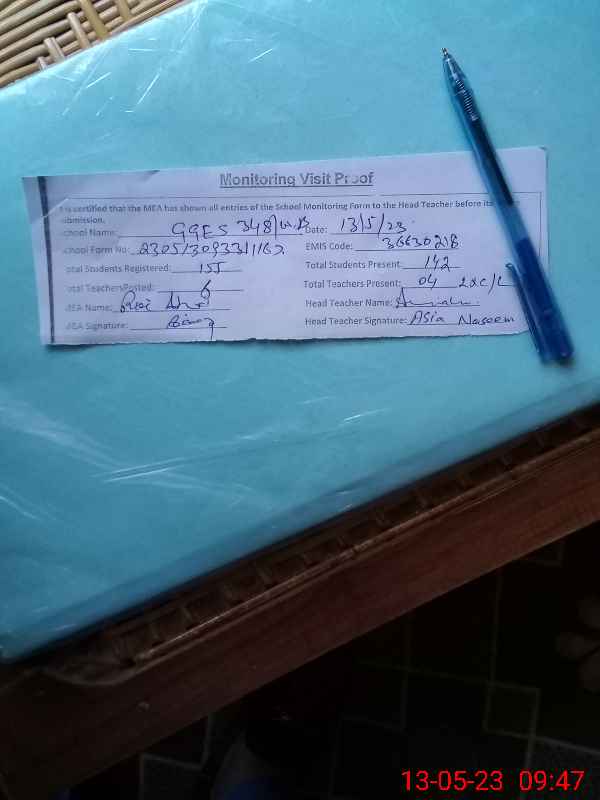 Monitoring Visit Proof
is certified that the MEA has shown all entries of the School Monitoring Form to the Head Teacher before its
ubmission.
chool Name: GGES 348/WB Date: 13/5/23
chool Form No: EMIS Code: 36630218
otal Students Registered: 155 Total Students Present: 142
otal Teachers Posted: 6 Total Teachers Present: 04 2xC/L
MEA Name: Head Teacher Name:
MEA Signature: Head Teacher Signature: Asia Naseem
13-05-23 09:47